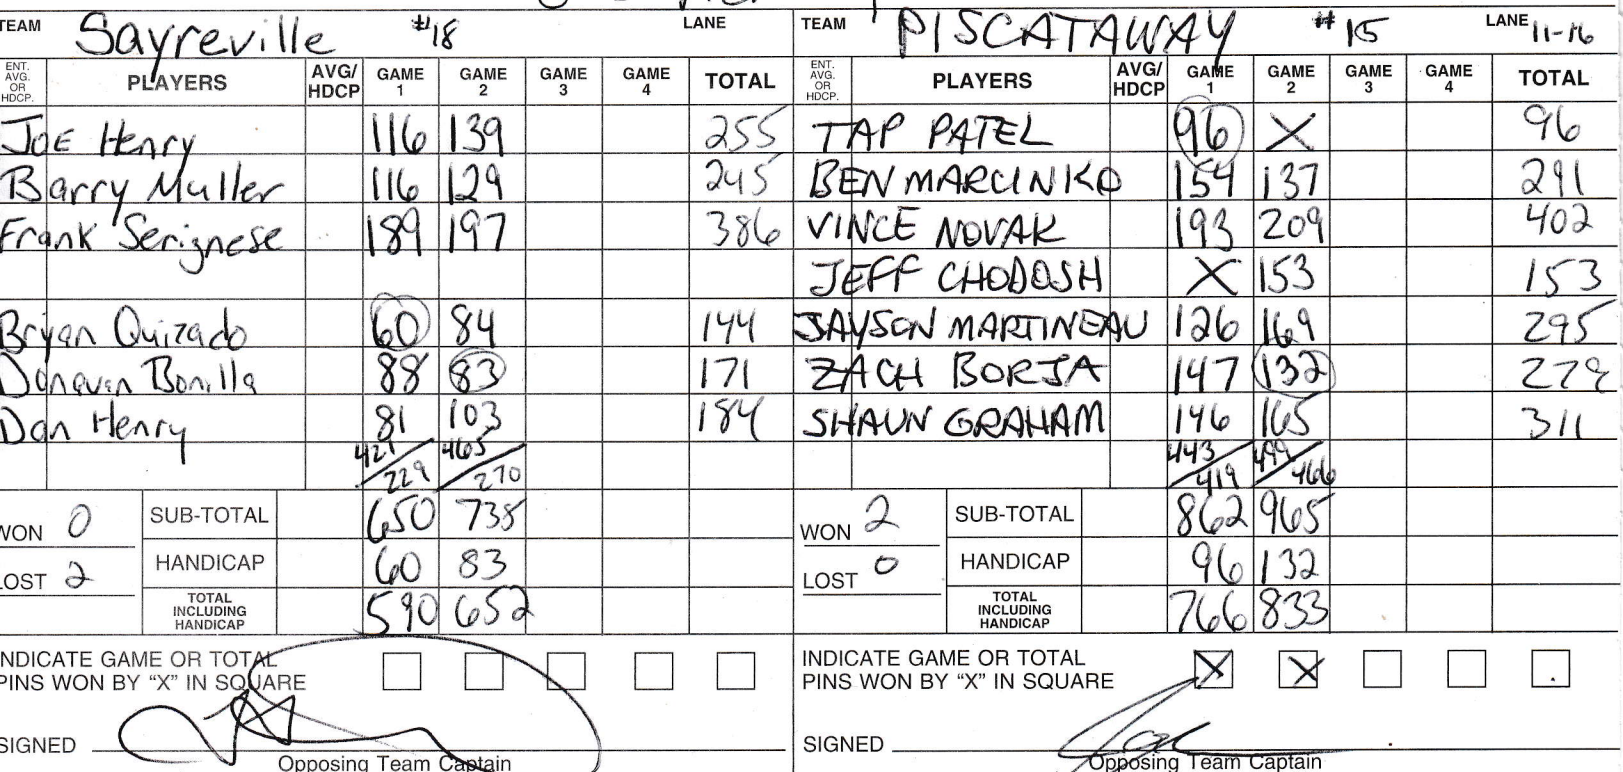 TEAM Sayreville #18 LANE
ENT. AVG. OR HDCP. PLAYERS AVG/ HDCP GAME 1 GAME 2 GAME 3 GAME 4 TOTAL
JOE Henry 116 139 255
Barry Muller 116 129 245
Frank Serignese 189 197 386
Bryan Quizado 60 84 144
Donovan Bonilla 88 83 171
Dan Henry 81 103 184
421/229 465/270
WON 0 SUB-TOTAL 650 735
LOST 2 HANDICAP 60 83
TOTAL INCLUDING HANDICAP 590 652
INDICATE GAME OR TOTAL
PINS WON BY "X" IN SQUARE
SIGNED
Opposing Team Captain
TEAM PISCATAWAY #15 LANE 11-16
ENT. AVG. OR HDCP. PLAYERS AVG/ HDCP GAME 1 GAME 2 GAME 3 GAME 4 TOTAL
TAP PATEL 96 X 96
BEN MARCINKO 154 137 291
VINCE NOVAK 193 209 402
JEFF CHODOSH X 153 153
JAYSON MARTINEAU 126 169 295
ZACH BORJA 147 132 279
SHAUN GRAHAM 146 165 311
443/419 499/466
WON 2 SUB-TOTAL 862 965
LOST 0 HANDICAP 96 132
TOTAL INCLUDING HANDICAP 766 833
INDICATE GAME OR TOTAL
PINS WON BY "X" IN SQUARE X X
SIGNED
Opposing Team Captain